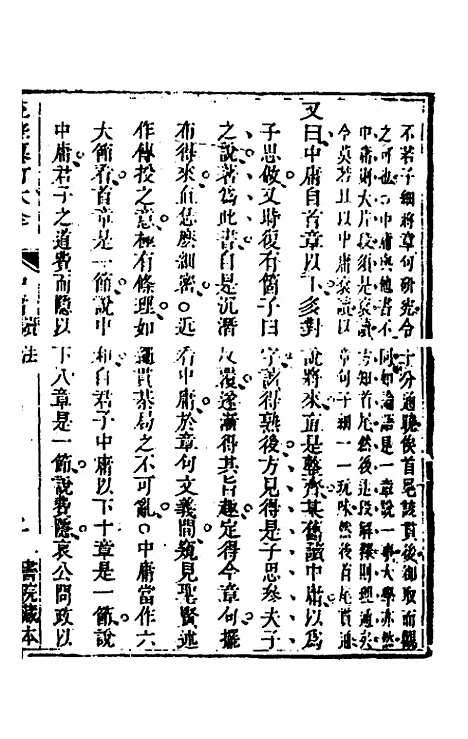 不若子細將章句研究令十分通曉俟首尾該貫後却取而觀
之可也○中庸與他書不同如論語是一章說一事大學亦然
中庸則大片段須是袞讀方知首尾然後逐段解釋則理通矣
今莫若且以中庸袞讀以章句子細一一玩味然後首尾通
又曰中庸自首章以下多對說將來直是整齊某舊讀中庸以爲
子思做又時復有箇子曰字讀得熟後方見得是子思參夫子
之說著爲此書自是沉潛反覆遂漸得其旨趣定得今章句擺
布得來直恁麽細密○近看中庸於章句文義間窺見聖賢述
作傳授之意極有條理如繩貫棊局之不可亂○中庸當作六
大節看首章是一節說中和自君子中庸以下十章是一節說
中庸君子之道費而隱以下八章是一節說費隱哀公問政以
讀法
書院藏本